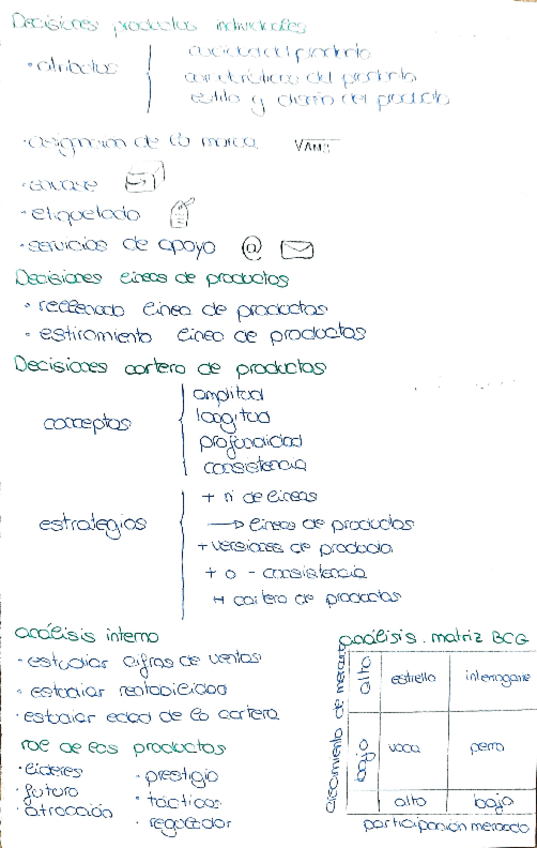 Decisiones productos individuales
· atributos
calidad del producto
características del producto
estilo y diseño del producto
· asignación de la marca VANS
· envase
· etiquetado
· servicios de apoyo @
Decisiones líneas de productos
· rellenado línea de productos
· estiramiento línea de productos
Decisiones cartera de productos
conceptos
amplitud
longitud
profundidad
consistencia
estrategias
+ nº de líneas
→ líneas de productos
+ versiones de producto
+ o - consistencia
cartera de productos
análisis interno
· estudiar cifras de ventas
· estudiar rentabilidad
· estudiar edad de la cartera
rol de los productos
· líderes
· futuro
· atracción
· prestigio
· tácticos
· regulador
análisis. matriz BCG
crecimiento de mercado
alto estrella interrogante
bajo vaca perro
alto bajo
participación mercado